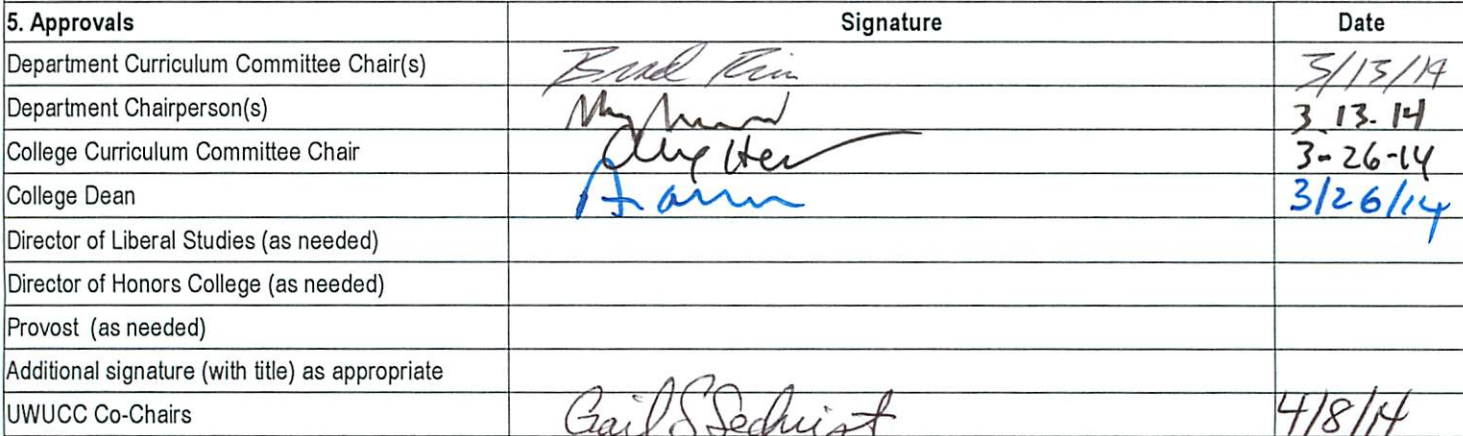 5. Approvals Signature Date
Department Curriculum Committee Chair(s) 3/13/14
Department Chairperson(s) 3.13.14
College Curriculum Committee Chair 3-26-14
College Dean 3/26/14
Director of Liberal Studies (as needed)
Director of Honors College (as needed)
Provost (as needed)
Additional signature (with title) as appropriate
UWUCC Co-Chairs Gail S Sechrist 4/8/14